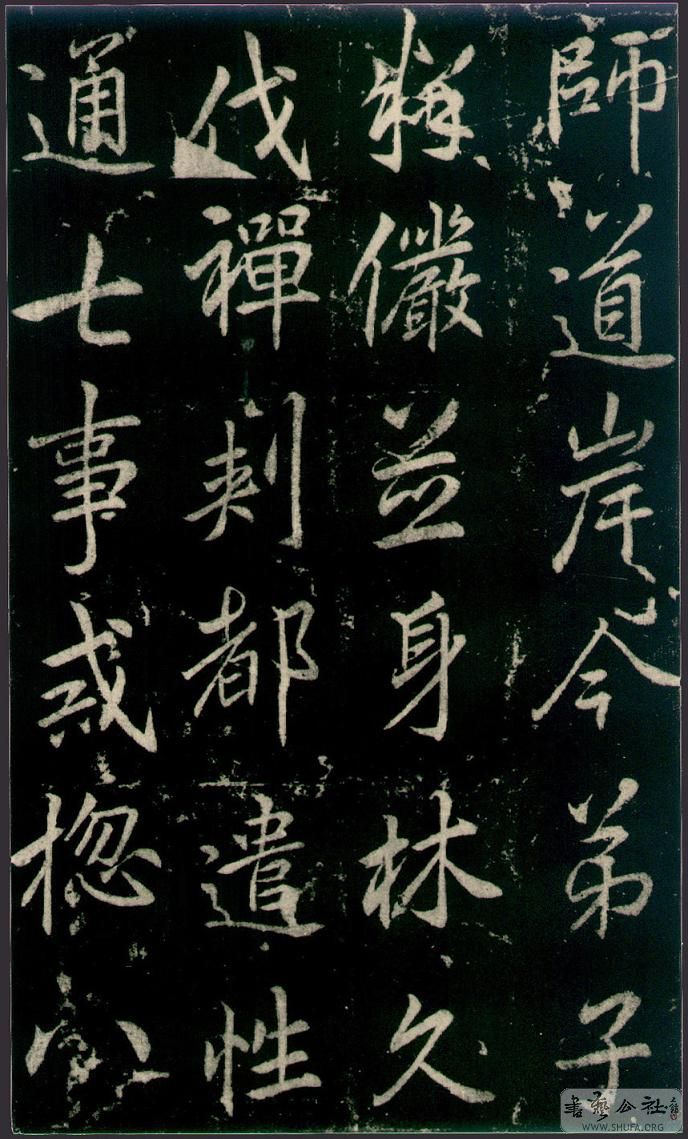 師道岸今弟子
釋儼並身林久
伐禪刹都遣性
通七事戒揔
書藝公社
WWW.SHUFA.ORG